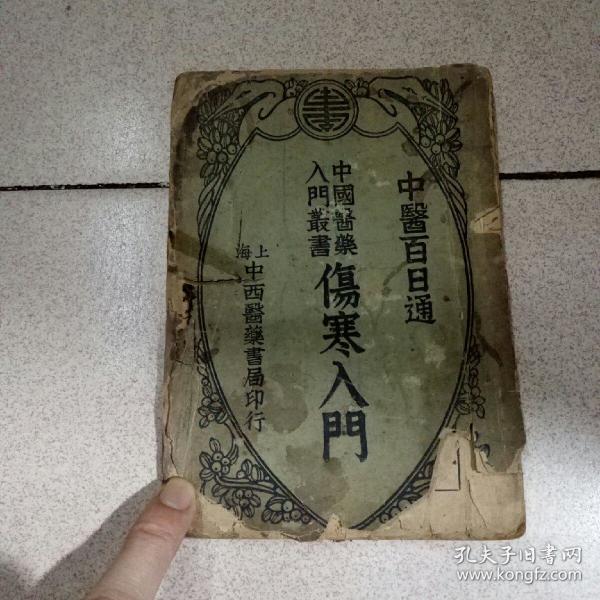 中醫百日通
中國醫藥
入門叢書
傷寒入門
上海
中西醫藥書局印行
孔夫子旧书网
www.kongfz.com